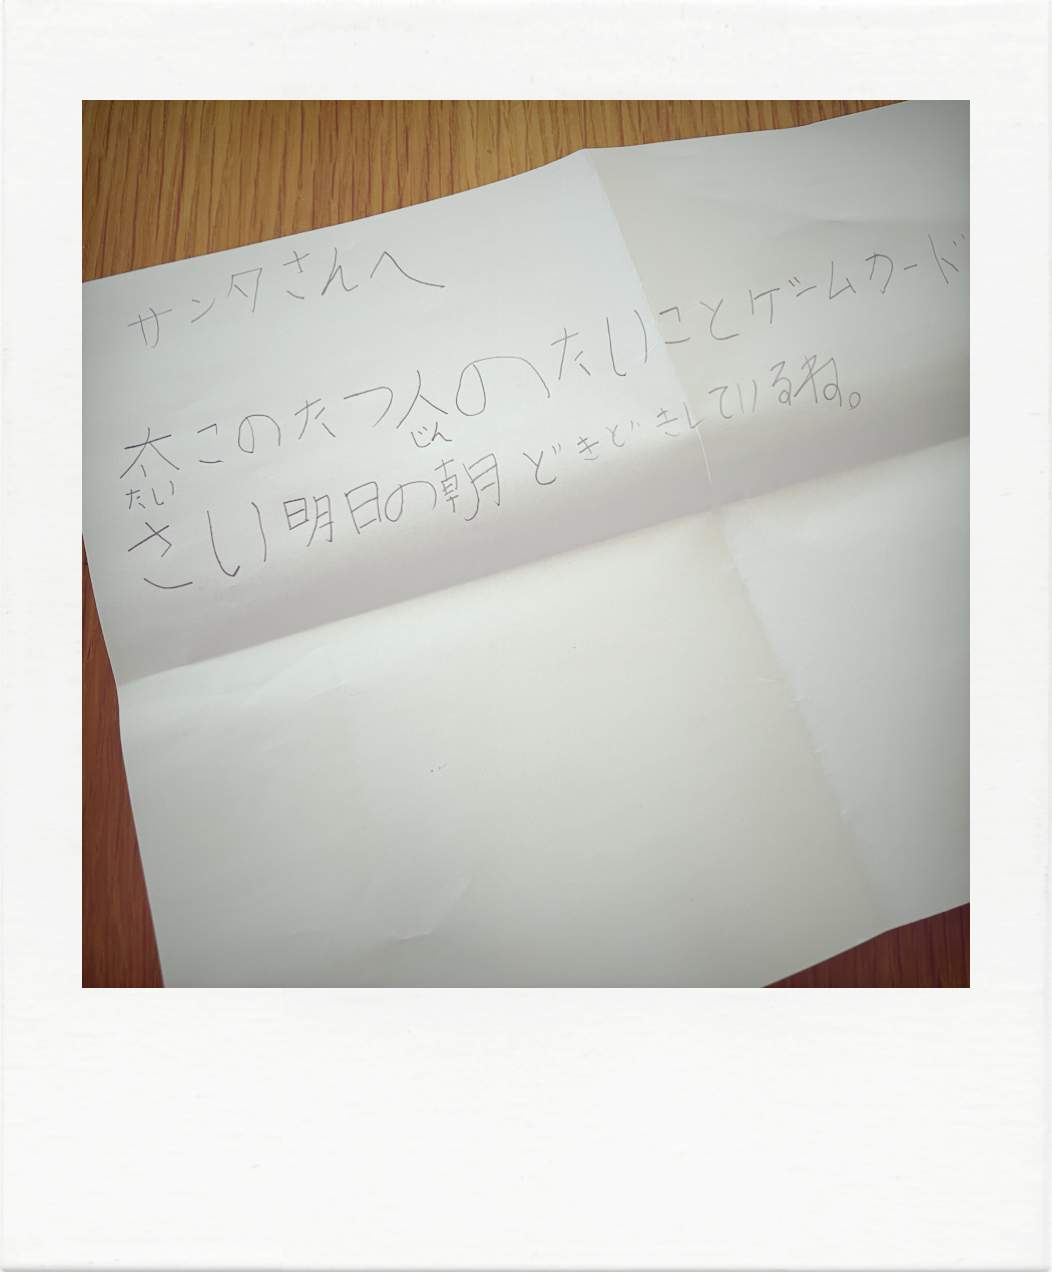 サンタさんへ
太このたつ人のたいことゲームカード
たい
じん
さい明日の朝どきどきしているね。